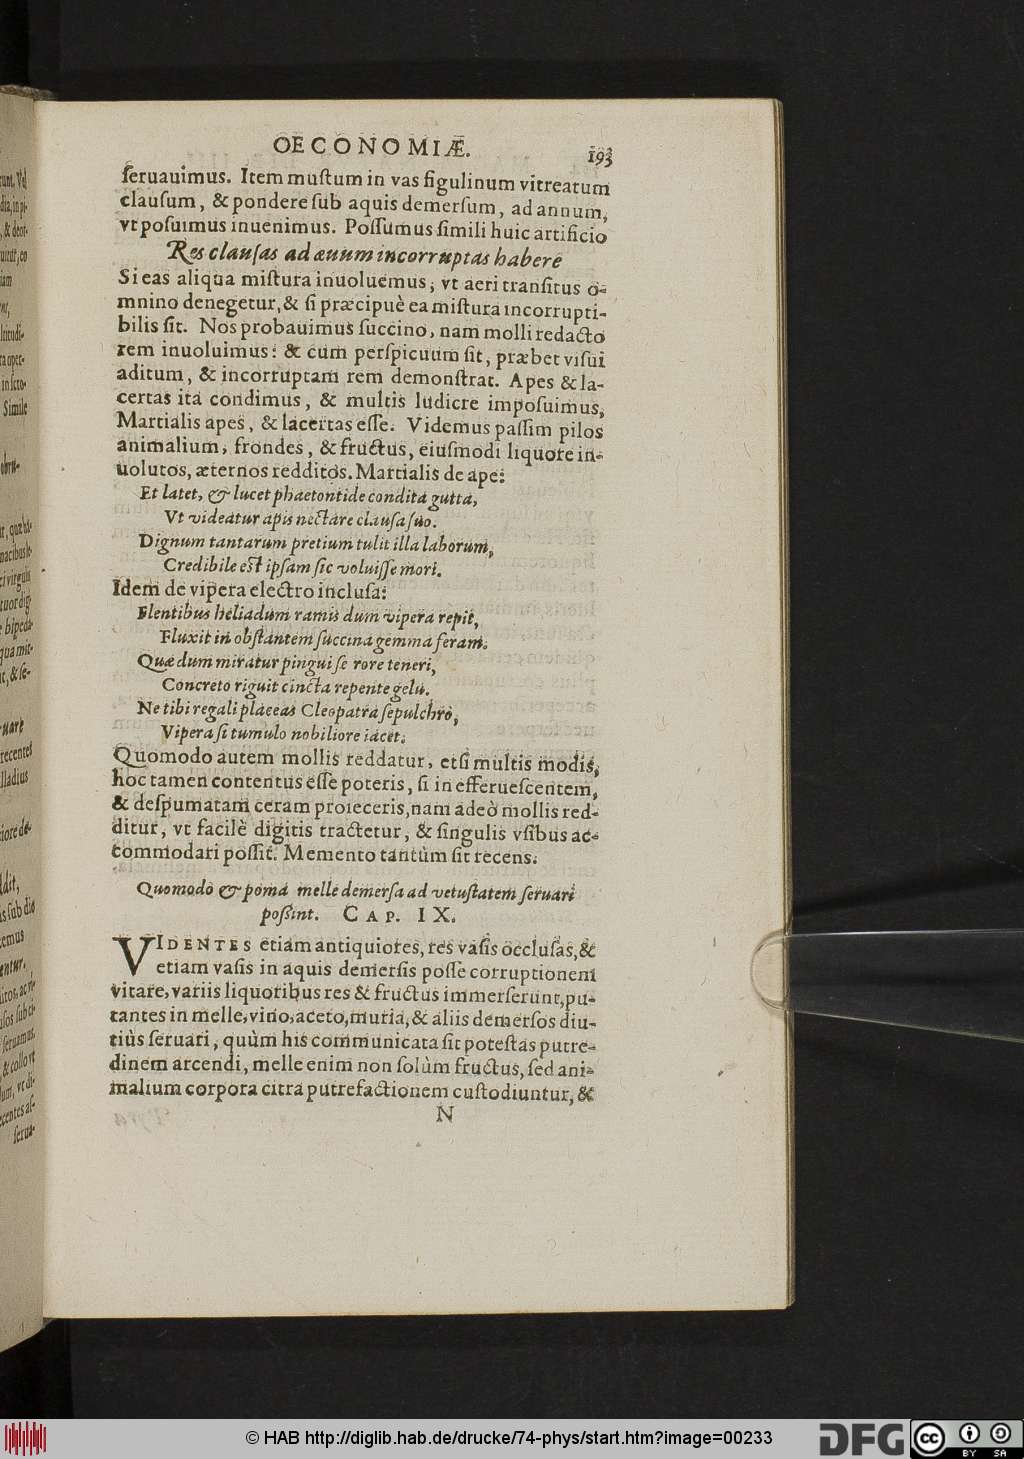 OECONOMIÆ. 193
ſeruauimus. Item muſtum in vas figulinum vitreatum
clauſum, & pondere ſub aquis demerſum, ad annum,
vt poſuimus inuenimus. Poſſumus ſimili huic artificio
Res clauſas ad æuum incorruptas habere
Si eas aliqua miſtura inuoluemus, vt aeri tranſitus o-
mnino denegetur, & ſi præcipuè ea miſtura incorrupti-
bilis ſit. Nos probauimus ſuccino, nam molli redacto
rem inuoluimus: & cum perſpicuum ſit, præbet viſui
aditum, & incorruptam rem demonſtrat. Apes & la-
certas ita condimus, & multis ludicre impoſuimus,
Martialis apes, & lacertas eſſe. Videmus paſſim pilos
animalium, frondes, & fructus, eiuſmodi liquore in-
uolutos, æternos redditos. Martialis de ape:
Et latet, & lucet phaetontide condita gutta,
Vt videatur apis nectare clauſa ſuo.
Dignum tantarum pretium tulit illa laborum,
Credibile eſt ipſam ſic voluiſſe mori.
Idem de vipera electro incluſa:
Flentibus heliadum ramis dum vipera repit,
Fluxit in obſtantem ſuccina gemma feram.
Quæ dum miratur pingui ſe rore teneri,
Concreto riguit cincta repente gelu.
Ne tibi regali placeas Cleopatra ſepulchro,
Vipera ſi tumulo nobiliore iacet.
Quomodo autem mollis reddatur, etſi multis modis,
hoc tamen contentus eſſe poteris, ſi in efferueſcentem,
& deſpumatam ceram proieceris, nam adeò mollis red-
ditur, vt facilè digitis tractetur, & ſingulis vſibus ac-
commodari poſſit. Memento tantùm ſit recens.
Quomodo & poma melle demerſa ad vetuſtatem ſeruari
poſsint. CAP. IX.
VIDENTES etiam antiquiores, res vaſis occluſas, &
etiam vaſis in aquis demerſis poſſe corruptionem
vitare, variis liquoribus res & fructus immerſerunt, pu-
tantes in melle, vino, aceto, muria, & aliis demerſos diu-
tiùs ſeruari, quùm his communicata ſit poteſtas putre-
dinem arcendi, melle enim non ſolùm fructus, ſed ani-
malium corpora citra putrefactionem cuſtodiuntur, &
N
© HAB http://diglib.hab.de/drucke/74-phys/start.htm?image=00233
DFG
cc BY SA